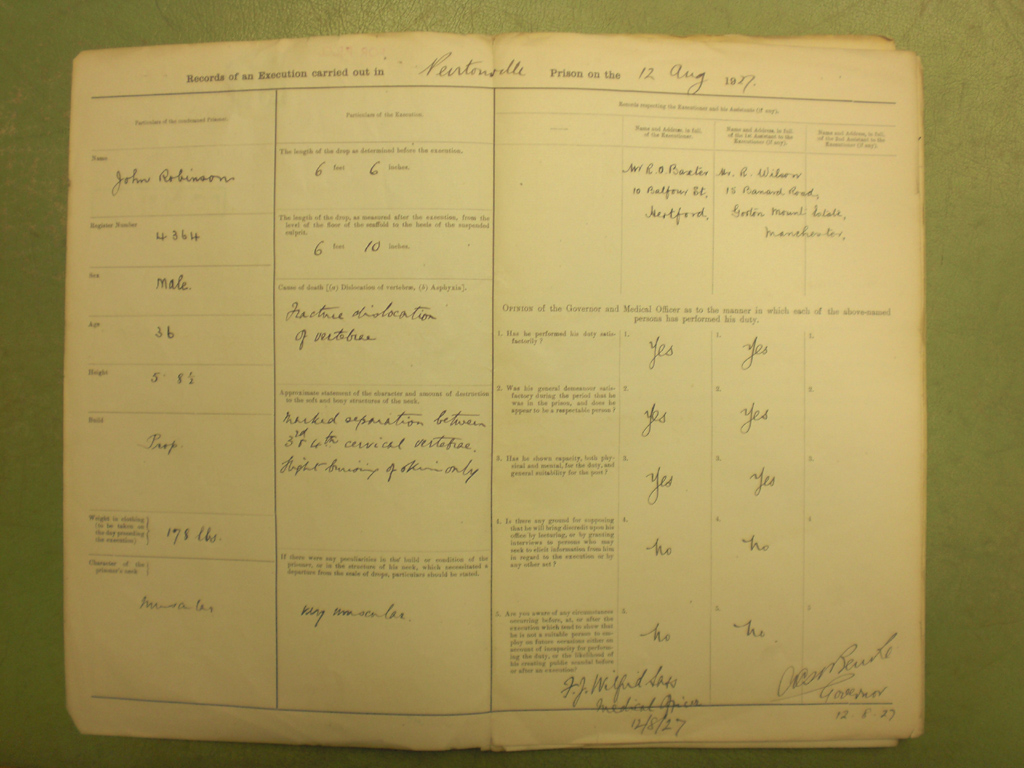 Records of an Execution carried out in Pentonville Prison on the 12 Aug 1927.
Particulars of the condemned Prisoner.
Name
John Robinson
Register Number
4364
Sex
Male.
Age
36
Height
5 8½
Build
Prop.
Weight in clothing
(to be taken on
the day preceding
the execution)
178 lbs.
Character of the
prisoner's neck
Muscular
Particulars of the Execution.
The length of the drop as determined before the execution.
6 feet 6 inches.
The length of the drop, as measured after the execution, from the
level of the floor of the scaffold to the heels of the suspended
culprit.
6 feet 10 inches.
Cause of death [(a) Dislocation of vertebræ, (b) Asphyxia].
Fracture dislocation
of vertebrae
Approximate statement of the character and amount of destruction
to the soft and bony structures of the neck.
Marked separation between
3rd & 4th cervical vertebrae.
Slight bruising of skin only
If there were any peculiarities in the build or condition of the
prisoner, or in the structure of his neck, which necessitated a
departure from the scale of drops, particulars should be stated.
Very muscular.
Records respecting the Executioner and his Assistants (if any).
Name and Address, in full,
of the Executioner.
Mr R. O. Baxter
10 Balfour St.
Hertford.
Name and Address, in full,
of the 1st Assistant to the
Executioner (if any).
Mr. R. Wilson
15 Barnard Road,
Gorton Mount Estate,
Manchester.
Name and Address, in full,
of the 2nd Assistant to the
Executioner (if any).
OPINION of the Governor and Medical Officer as to the manner in which each of the above-named
persons has performed his duty.
1. Has he performed his duty satis-
factorily?
1. Yes
1. Yes
1.
2. Was his general demeanour satis-
factory during the period that he
was in the prison, and does he
appear to be a respectable person?
2. Yes
2. Yes
2.
3. Has he shown capacity, both phy-
sical and mental, for the duty, and
general suitability for the post?
3. Yes
3. Yes
3.
4. Is there any ground for supposing
that he will bring discredit upon his
office by lecturing, or by granting
interviews to persons who may
seek to elicit information from him
in regard to the execution or by
any other act?
4. No
4. No
4.
5. Are you aware of any circumstances
occurring before, at, or after the
execution which tend to show that
he is not a suitable person to em-
ploy on future occasions either on
account of incapacity for perform-
ing the duty, or the likelihood of
his creating public scandal before
or after an execution?
5. No
5. No.
5.
F. J. Wilfrid Sass
Medical Officer
12/8/27
Governor
12.8.27